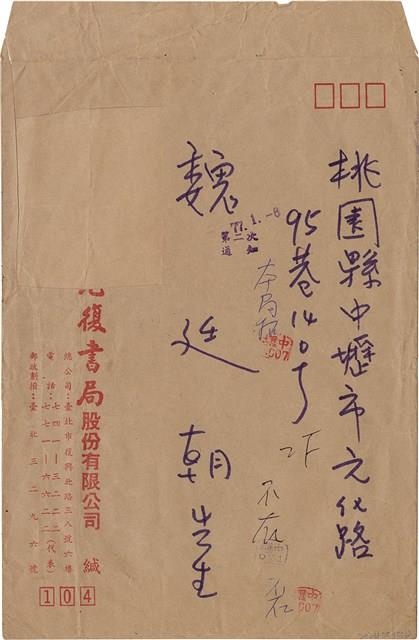 桃園縣中壢市元化路
95巷140号
魏廷朝先生
77.1.-8
第二次
通知
不在
復書局股份有限公司 緘
總公司：臺北市復興北路三八號六樓
電話：七四一—三二二二
七七一—六六二二(代表)
郵政劃撥：臺北三二九六號
104